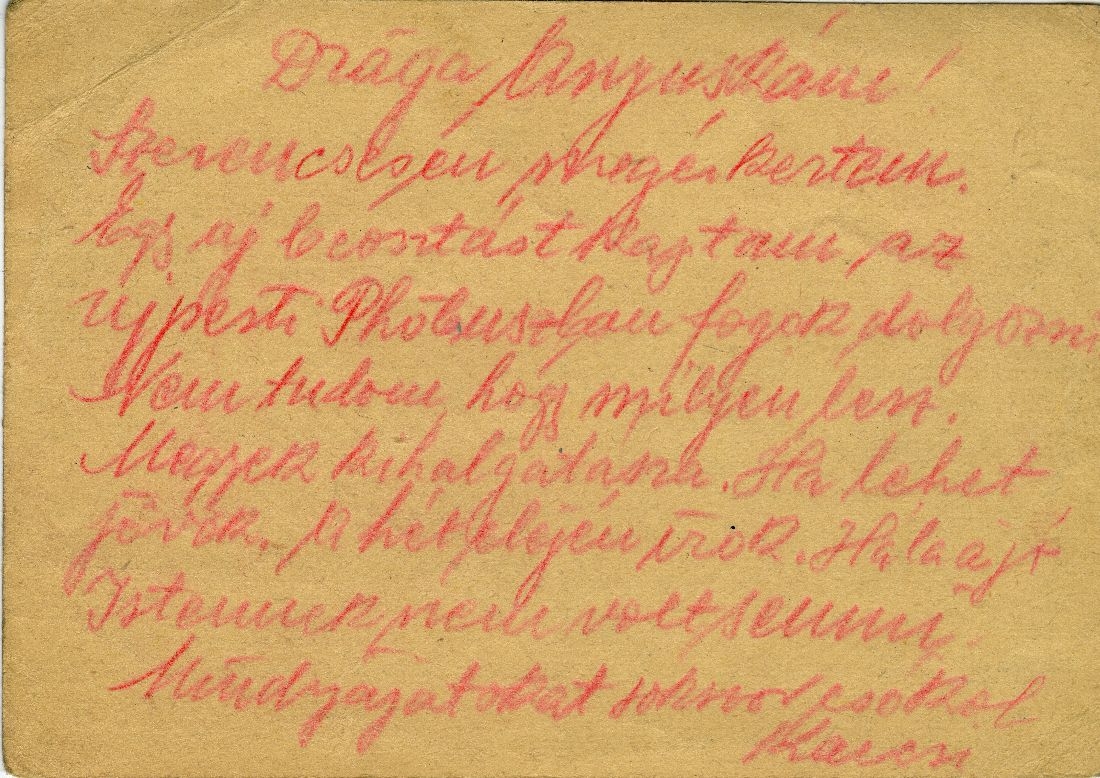 Drága Anyuskám!
Szerencsésen megérkeztem.
Egy új beosztást kaptam az
újpesti Phöbusban fogok dolgozni
Nem tudom hogy milyen lesz.
Megyek kihalgatásra. Ha lehet
jövök. A hét elején írok. Hála a jó
Istennek nem volt semmi.
Mindnyájatokat sokszor csókol
Karcsi